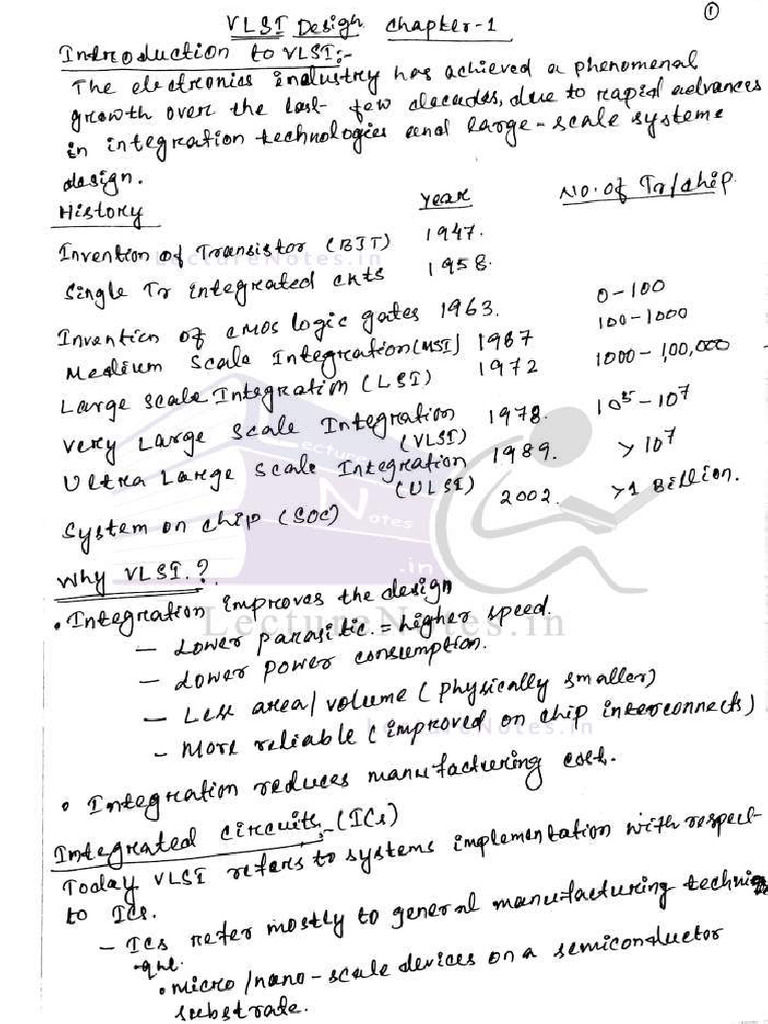 VLSI Design chapter-1
①
Introduction to VLSI:-
The electronics industry has achieved a phenomenal
growth over the last few decades, due to rapid advances
in integration technologies and large-scale systems
design.
History Year No. of Tr/chip
Invention of Transistor (BJT) 1947.
Single Tr integrated ckts 1958.
Invention of CMOS logic gates 1963. 0-100
Medium Scale Integration (MSI) 1967 100-1000
Large Scale Integration (LSI) 1972 1000-1,00,000
Very Large Scale Integration (VLSI) 1978. 10⁵-10⁷
Ultra Large Scale Integration (ULSI) 1989. >10⁷
System on chip (SOC) 2002. >1 Billion.
Why VLSI.?
• Integration improves the design
- Lower parasitic. = higher speed.
- Lower power consumption.
- Less area/volume (physically smaller)
- More reliable (improved on chip interconnects)
• Integration reduces manufacturing cost.
Integrated circuits:-(ICs)
Today VLSI refers to systems implementation with respect
to ICs.
- ICs refer mostly to general manufacturing techni
-que.
• micro/nano-scale devices on a semiconductor
substrade.
LectureNotes.in
LectureNotes.in
LectureNotes.in
Lecture
Notes
.in